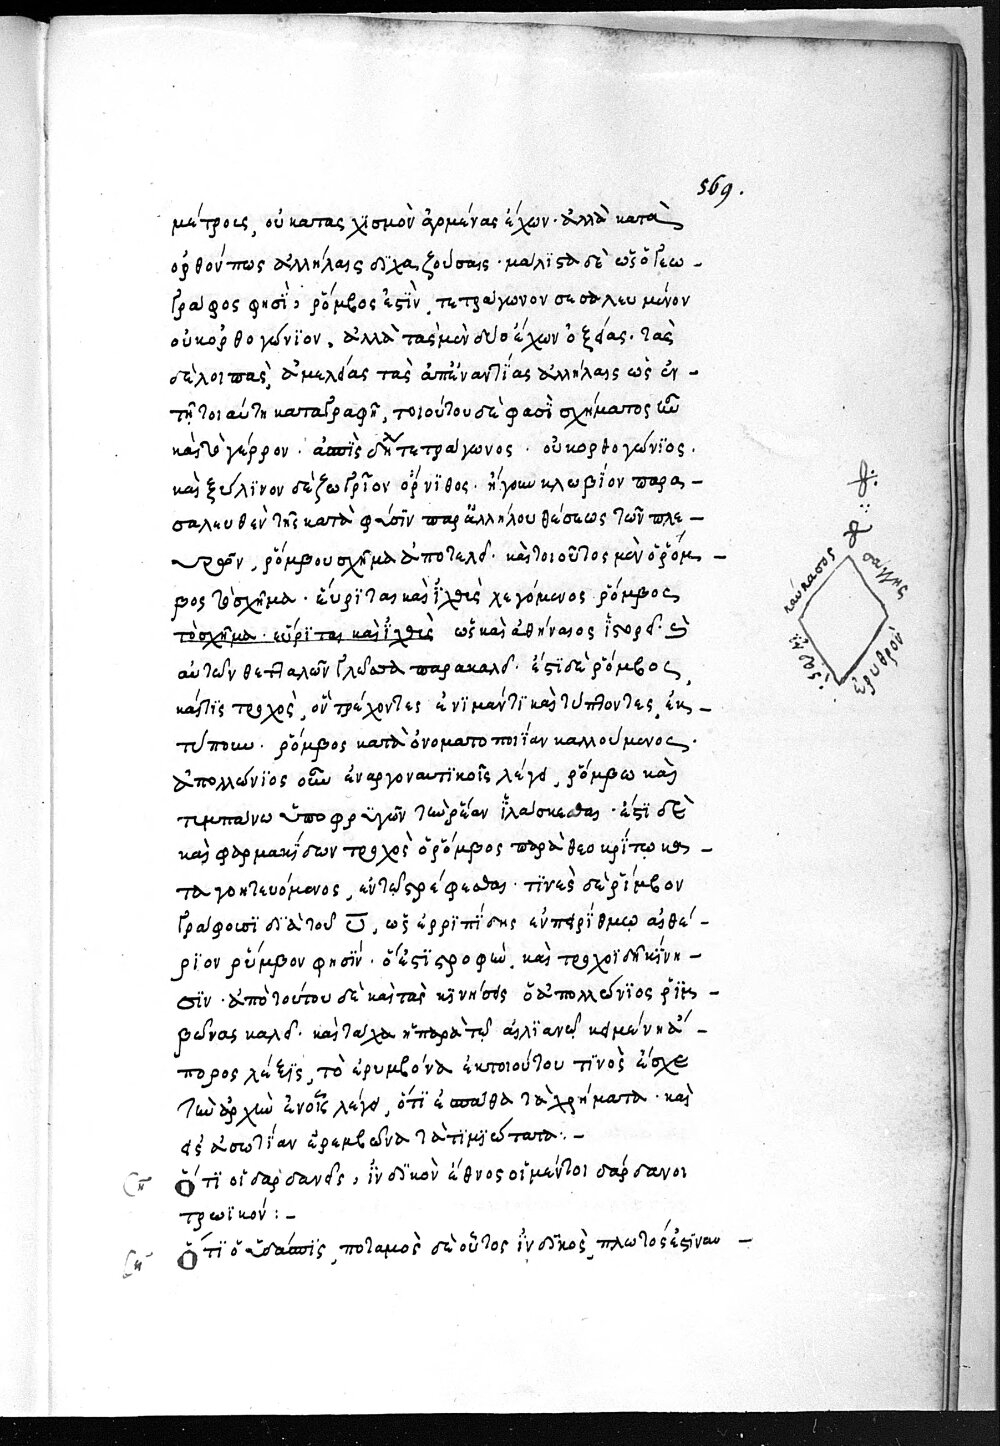 569.
μέτροις, οὐ κατασχισμὸν ἠρμένας ἔχων· ἀλλὰ κατὰ
ὀρθόν πως ἀλλήλαις διχαζούσαις· μάλιστα δὲ ὡς ὁ Γεω-
γράφος φησὶ, ῥόμβος ἐστὶν, τετράγωνον σεσαλευμένον
οὐκ ὀρθογώνϊον, ἀλλὰ τὰς μὲν δύο ἔχων ὀξείας· τὰς
δὲ λοιπὰς, ἀμβλείας τὰς ἀπέναντίας ἀλλήλαις ὡς ἐν-
τῇ τοιαύτῃ καταγραφῇ, τοιούτου δέ φασὶ σχήματος
καὶ τὸ γέρρον· ἀσπὶς δὴ τετράγωνος· οὐκ ὀρθογώνϊος·
καὶ ξύλϊνον δὲ ζωγρίον ὄρνιθος· ἤγουν κλωβίον παρα-
σαλευθὲν τῆς κατὰ φύσιν παραλλήλου θέσεως τῶν πλε-
υρῶν, ῥόμβου σχῆμα ἀποτελεῖ· καὶ τοιοῦτος μὲν ὁ ῥόμ-
βος τὸ σχῆμα· εὕρϊται καὶ ἰχθὺς λεγόμενος ῥόμβος
τὸ σχῆμα· εὕρϊται καὶ ἰχθὺς ὡς καὶ ἀθήναιος ἱστορεῖ·
αὐτῶν θετταλῶν γλῶττα παρακαλεῖ· ἔστι δὲ ῥόμβος,
καὶ τὶς τροχὸς, ὃν τρέχοντες ἐν ἱμάντϊ καὶ τύπτοντες, ἐκ-
τύπουν· ῥόμβος κατὰ ὀνοματοποιΐαν καλλούμενος·
ἀπολλώνϊος οὖν ἐν ἀργοναυτϊκοῖς λέγει, ῥόμβω καὶ
τυμπάνω ὑπὸ φρυγῶν τὴν ῥέαν ἱλάσκεσθαι· ἔστϊ δὲ
καὶ φαρμακίδων τροχὸς ὁ ῥόμβος παρὰ θεοκρίτω κα-
ταγοητευόμενος, ἐν τῶ στρέφεσθαι· τϊνὲς δὲ ῥύμβον
γράφουσϊ δϊὰ τοῦ υ, ὡς εὐριπίδης ἐν πειρίθω αἰθέ-
ρϊον ῥύμβον φησίν· ὅ ἐστϊ στροφὴν, καὶ τροχοϊδῆ κίνη-
σϊν· ἀπὸ τούτου δὲ καὶ τὰς κινήσεις ὁ ἀπολλώνϊος ῥυμ-
βῶνας καλεῖ· καὶ τάχα ἡ παρὰ τῶ αἰλϊανῶ κειμένη ἄ-
πορος λέξϊς, τὸ ἐρυμβόνα ἐκ τοιούτου τϊνὸς ἔσχε
τὴν ἀρχὴν ἐν οἷς λέγει, ὅτϊ ἐσπάθα τὰ χρήματα· καὶ
εἰς ἀσωτίαν ἐρεμβῶνα τὰ τϊμϊώτατα:-
Ὅτϊ οἱ δαρδανεῖς, ἰνδϊκὸν ἔθνος οἱ μέντοι δάρδανοι
τρωϊκόν:-
Ὅτϊ ὁ ὑδάσπϊς, ποταμὸς δὲ οὗτος ἰνδϊκὸς, πλωτός ἐστι ναυ-
καύκασος
σάλλης
ἐρυθρὸν